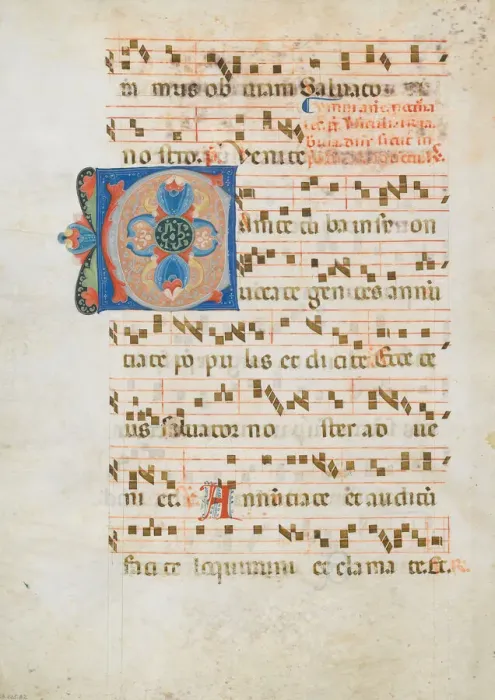 mus ob uiam Saluato
no stro. Venite
C anite tu ba in syon
uocate gentes annu
ciate po pu lis et dicite Ecce de
us saluator no ster ad ue
ni et. Annuciate et auditu
faci te loquimini et clama te. Et.